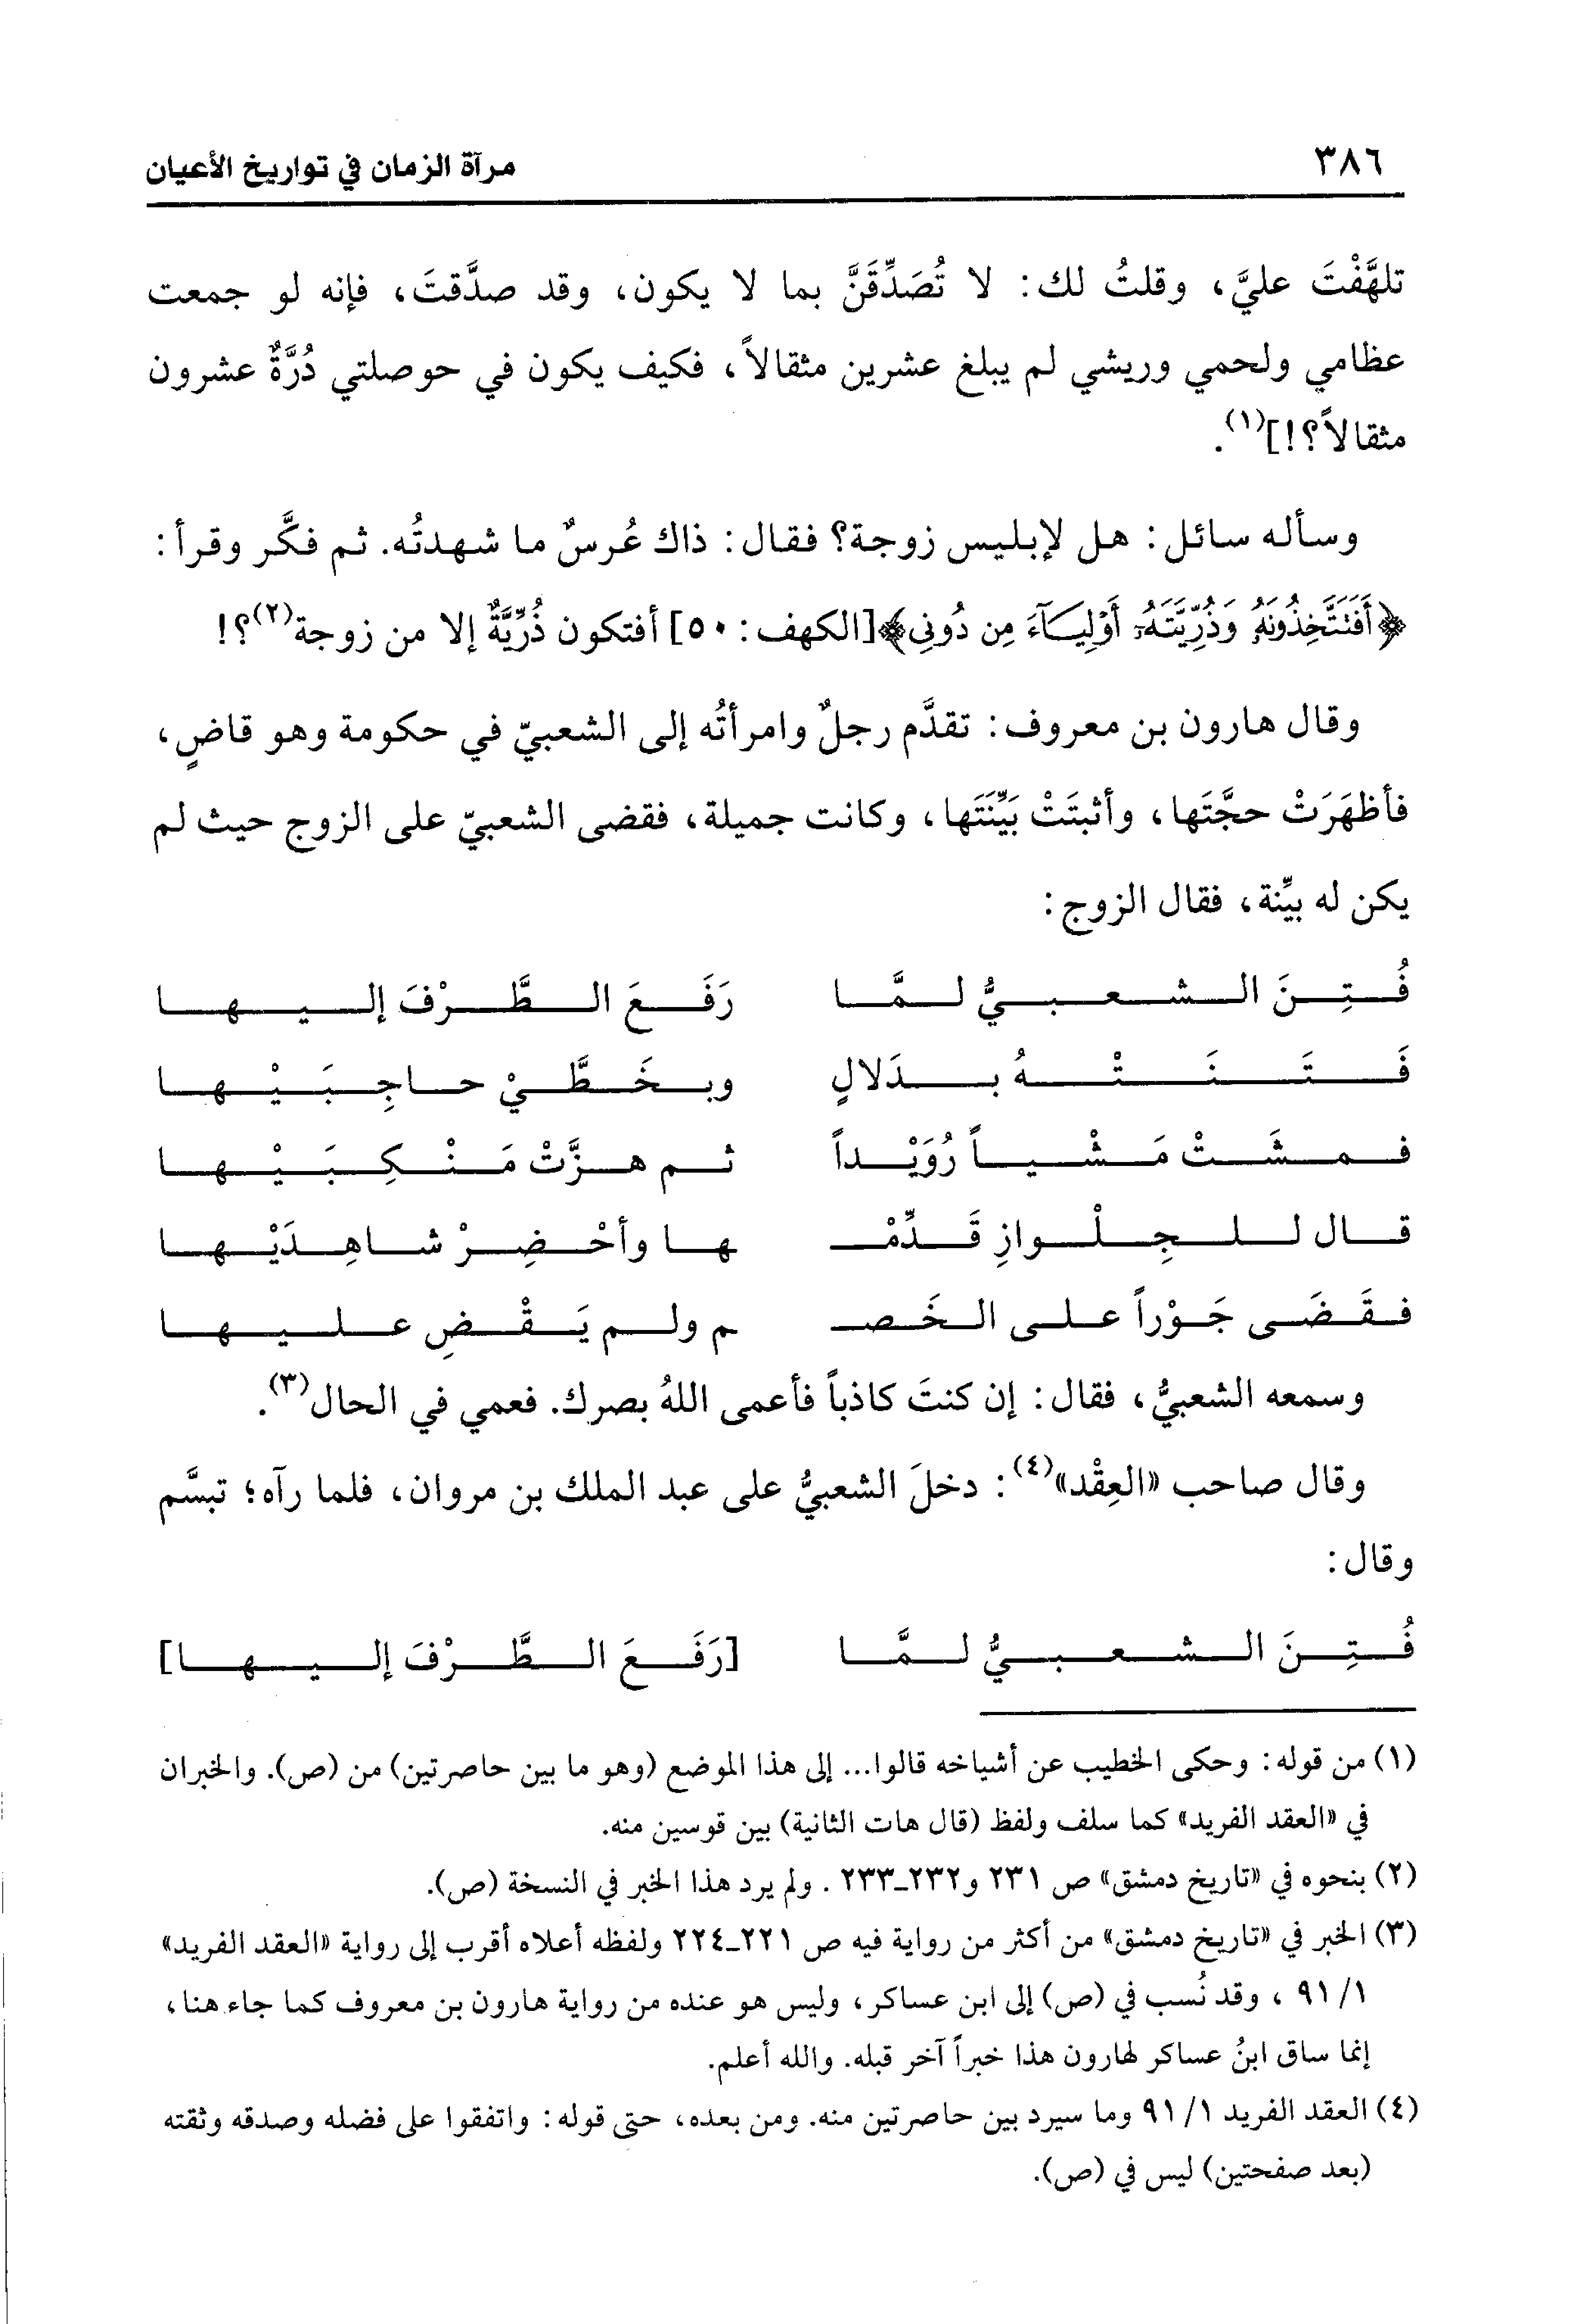 ٣٨٦ مرآة الزمان في تواريخ الأعيان
تلهَّفْتَ عليَّ، وقلتُ لك: لا تُصَدِّقَنَّ بما لا يكون، وقد صدَّقتَ، فإنه لو جمعت
عظامي ولحمي وريشي لم يبلغ عشرين مثقالاً، فكيف يكون في حوصلتي دُرَّةٌ عشرون
مثقالاً؟!](١).
وسأله سائل: هل لإبليس زوجة؟ فقال: ذاك عُرسٌ ما شهدتُه. ثم فكَّر وقرأ:
﴿أَفَتَتَّخِذُونَهُۥ وَذُرِّيَّتَهُۥٓ أَوْلِيَآءَ مِن دُونِي﴾[الكهف: ٥٠] أفتكون ذُرِّيَّةٌ إلا من زوجة(٢)؟!
وقال هارون بن معروف: تقدَّم رجلٌ وامرأتُه إلى الشعبيّ في حكومة وهو قاضٍ،
فأظهَرَتْ حجَّتَها، وأثبتَتْ بَيِّنَتَها، وكانت جميلة، فقضى الشعبيّ على الزوج حيث لم
يكن له بيِّنة، فقال الزوج:
فُتِنَ الشعبيُّ لمَّا رَفَعَ الطَّرْفَ إليها
فَتَنَتْهُ بدَلالٍ وبخَطَّيْ حاجِبَيْها
فمشَتْ مَشْياً رُوَيْداً ثم هزَّتْ مَنْكِبَيْها
قال للجِلْوازِ قَدِّمْـ ـها وأحْضِرْ شاهِدَيْها
فقَضَى جَوْراً على الخَصـ ـم ولم يَقْضِ عليها
وسمعه الشعبيُّ، فقال: إن كنتَ كاذباً فأعمى اللهُ بصرك. فعمي في الحال(٣).
وقال صاحب «العِقْد»(٤): دخلَ الشعبيُّ على عبد الملك بن مروان، فلما رآه؛ تبسَّم
وقال:
فُتِنَ الشعبيُّ لمَّا [رَفَعَ الطَّرْفَ إليها]
(١) من قوله: وحكى الخطيب عن أشياخه قالوا... إلى هذا الموضع (وهو ما بين حاصرتين) من (ص). والخبران
في «العقد الفريد» كما سلف ولفظ (قال هات الثانية) بين قوسين منه.
(٢) بنحوه في «تاريخ دمشق» ص ٢٣١ و٢٣٢ـ٢٣٣ . ولم يرد هذا الخبر في النسخة (ص).
(٣) الخبر في «تاريخ دمشق» من أكثر من رواية فيه ص ٢٢١ـ٢٢٤ ولفظه أعلاه أقرب إلى رواية «العقد الفريد»
١/ ٩١ ، وقد نُسب في (ص) إلى ابن عساكر، وليس هو عنده من رواية هارون بن معروف كما جاء هنا،
إنما ساق ابنُ عساكر لهارون هذا خبراً آخر قبله. والله أعلم.
(٤) العقد الفريد ١/ ٩١ وما سيرد بين حاصرتين منه. ومن بعده، حتى قوله: واتفقوا على فضله وصدقه وثقته
(بعد صفحتين) ليس في (ص).